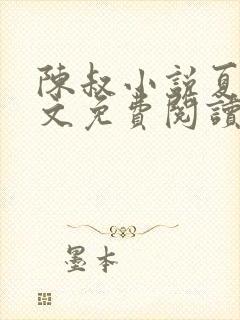 陳叔小說夏
文免費閱讀
墨本